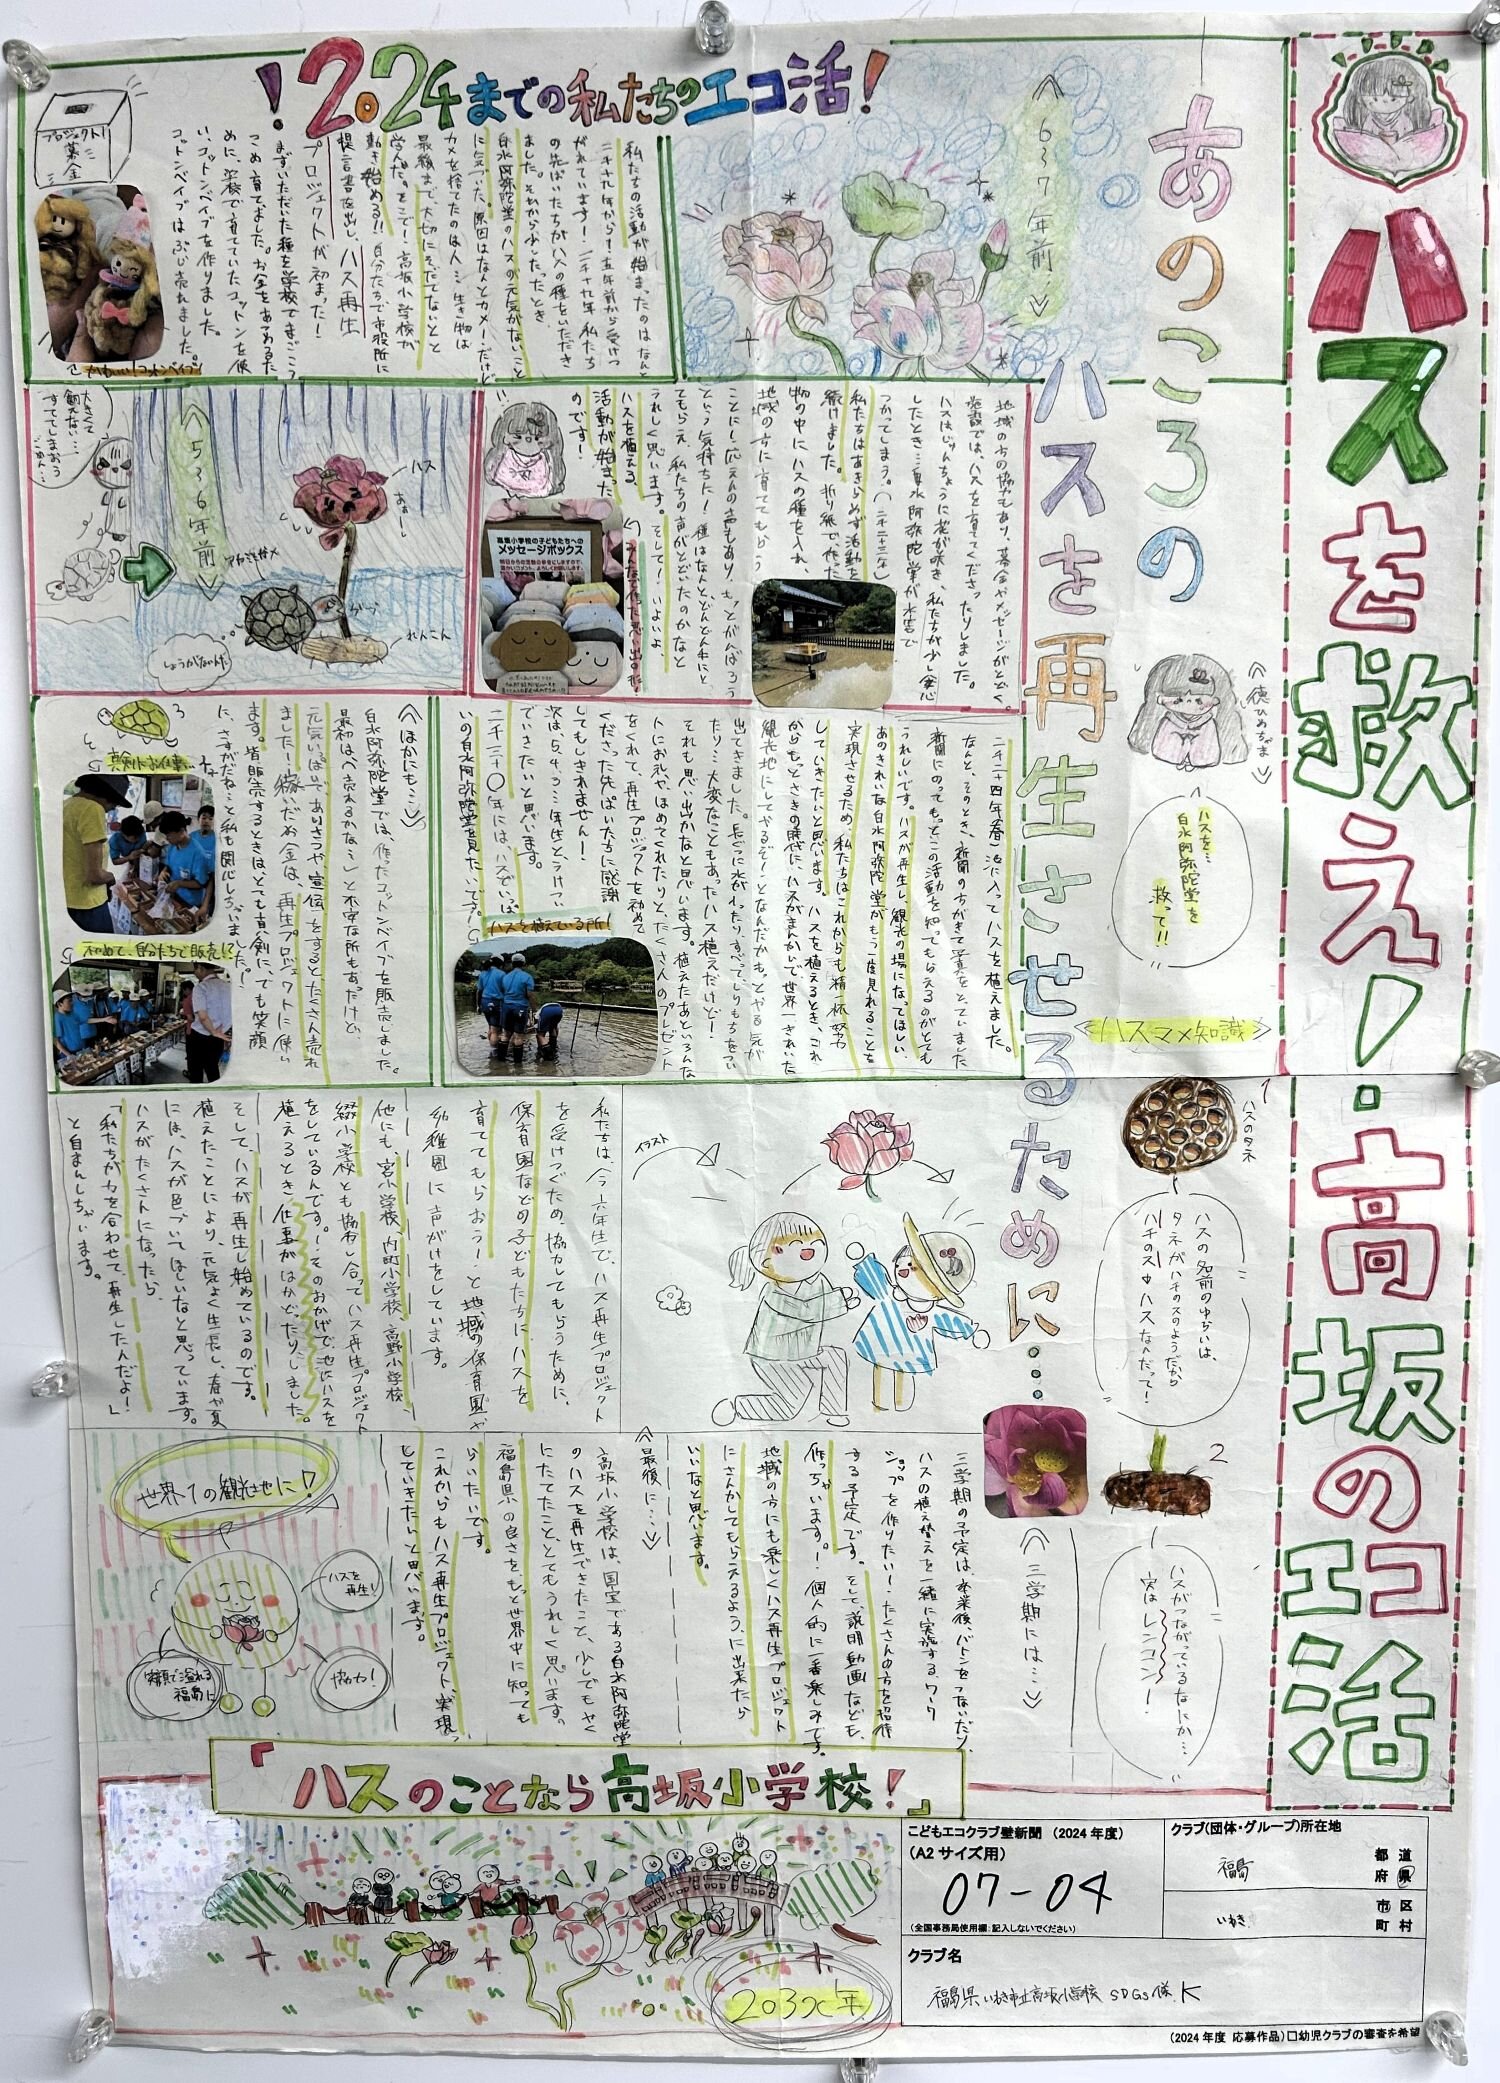 ハスを救え!・高坂のエコ活
あのころの
ハスを再生させるために・・・・
2024までの私たちのエコ活!
637年前
プロジェクト!
募金
かわいい!コットンベイブ
私たちの活動が始まったのはなんと
二千十九年から!五年前から受けつ
がれています!二千十九年、私たち
の先ぱいたちがハスの種をいただき
ました。それから少したったとき、
白水阿弥陀堂のハスの元気がないこと
に気づいた。原因はなんとカメ!だけど
カメを捨てたのは人…生き物は
最後まで、大切にそだてないとと
学んだ。そこで!高坂小学校が
動き始める!!自分たちで市役所に
提言書を出し、ハス再生
プロジェクトが初まった!
まずいただいた種を学校でまごころ
こめ育てました。お金をあつめるた
めに、学校で育てていたコットンを使
い、コットンベイブを作りました。
コットンベイブはぶじ売れました。
大きくて
飼えない…
すてしまおう
ごめん…
536年前
ハス
あぁー
アカミミガメ
がぶっ
れんこん
しょうがないんだ
地域の方の協力もあり、募金やメッセージがとどく。
施設では、ハスを育ててくださったりしました。
ハスはじゅんちょうに花が咲き、私たちが少し安心
したとき…白水阿弥陀堂が水害で
つかってしまう。(二千二十三年)
私たちはあきらめず活動を
続けました。折り紙で作った
物の中にハスの種を入れ、
地域の方に育ててもらう
ことに!応えんの声もあり、もっとがんばろう
という気持ちに!種はなんとどんどん手にと
てもらえ、私たちの声がとどいたのかなと
うれしく思います。そして!いよいよ、
ハスを植える
活動が始まった
のです!
高坂小学校の子どもたちへの
メッセージボックス
みんなで作った思い出の形!
徳ひめちゃま
ハスを…
白水阿弥陀堂を
救って!!
二千二十四年(春)池に入ってハスを植えました。
なんと、そのとき、新聞の方がきて写真をとっていました
新聞にのってもっとこの活動を知ってもらえるのがとても
うれしいです。ハスが再生し、観光の場になってほしい、
あのきれいな白水阿弥陀堂がもう一度見れることを
実現させるため、私たちはこれからも精一杯努力
していきたいと思います。ハスを植えるとき、これ
からもっとさきの時代に、ハスがまんかいで、世界一きれいな
観光地にしてやるぞ!となんだかもっとやる気が
出てきました。長ぐつに水が入ったり、すべってしりもちをつい
たり…大変なこともあったハス植えだけど!
それも思い出かなと思います。植えたあといろんな
人にお礼や、ほめてくれたりと、たくさんのプレゼント
をくれて、再生プロジェクトを初めて
くださった先ぱいたちに感謝
してもしきれません!
次は、5、4、3…年生と、うけつい
でいきたいと思います。
二千三十〇年には、ハスでいっぱ
いの白水阿弥陀堂を見たいです!
ハスを植えている所!
ほかにも…
白水阿弥陀堂では、作ったコットンベイブを販売しました。
最初はぺ売れるかな…と不安な所もあったけど、
元気いっぱいであいさつや宣伝をするとたくさん売れ
ました!稼いだお金は、再生プロジェクトに使い
ます。皆販売するときは、とても真剣に、でも笑顔
に、さすがだね…と私も関心しちゃいました!。
真剣にお仕事…
初めて、自分たちで販売に
ハスマメ知識
1
ハスのタネ
ハスの名前のゆらいは、
タネがハチのスのようだから
ハチのス→ハスなんだって!
2
ハスがつながっているなにか…
実はレンコン!
イラスト
私たちは、今六年生で、ハス再生プロジェクト
を受けつぐため、協力してもらうために、
保育園などの子どもたちにハスを
育ててもらおう!と地域の保育園や
幼稚園に声がけをしています。
他にも、宮小学校、内町小学校、高野小学校、
綴小学校とも協力し合ってハス再生プロジェクト
をしているんです!そのおかげで池にハスを
植えるとき、仕事がはかどったりしました。
そして、ハスが再生し始めているのです。
植えたことにより、元気よく生長し、春や夏
には、ハスが色づいてほしいなと思っています。
ハスがたくさんになったら、
「私たちが力を合わせて、再生したんだよ!」
と自まんしちゃいます。
三学期には…
三学期の予定は、卒業後、バトンをつないだり、
ハスの植え替えを一緒に実施する、ワーク
ショップを作りたい!たくさんの方を招待
する予定です。そして、説明動画なども、
作っちゃいます!個人的に一番楽しみです。
地域の方にも楽しくハス再生プロジェクト
にさんかしてもらえるように出来たら
いいなと思います。
最後に…
高坂小学校は、国宝である白水阿弥陀堂
のハスを再生できたこと、少しでもやく
にたてたこと、とてもうれしく思います。
福島県の良さを、もっと世界中に知っても
らいたいです。
これからもハス再生プロジェクト、実現
していきたいと思います。
世界一の観光地に!
ハスを
再生!
笑顔で溢れる
福島に
協力!
「ハスのことなら高坂小学校!」
203x年
こどもエコクラブ壁新聞 (2024年度)
(A2サイズ用)
07-04
(全国事務局使用欄:記入しないでください)
クラブ(団体・グループ)所在地
福島
都 道
府 県
いわき
市 区
町 村
クラブ名
福島県いわき市立高坂小学校 SDGs隊K
(2024年度 応募作品)□幼児クラブの審査を希望